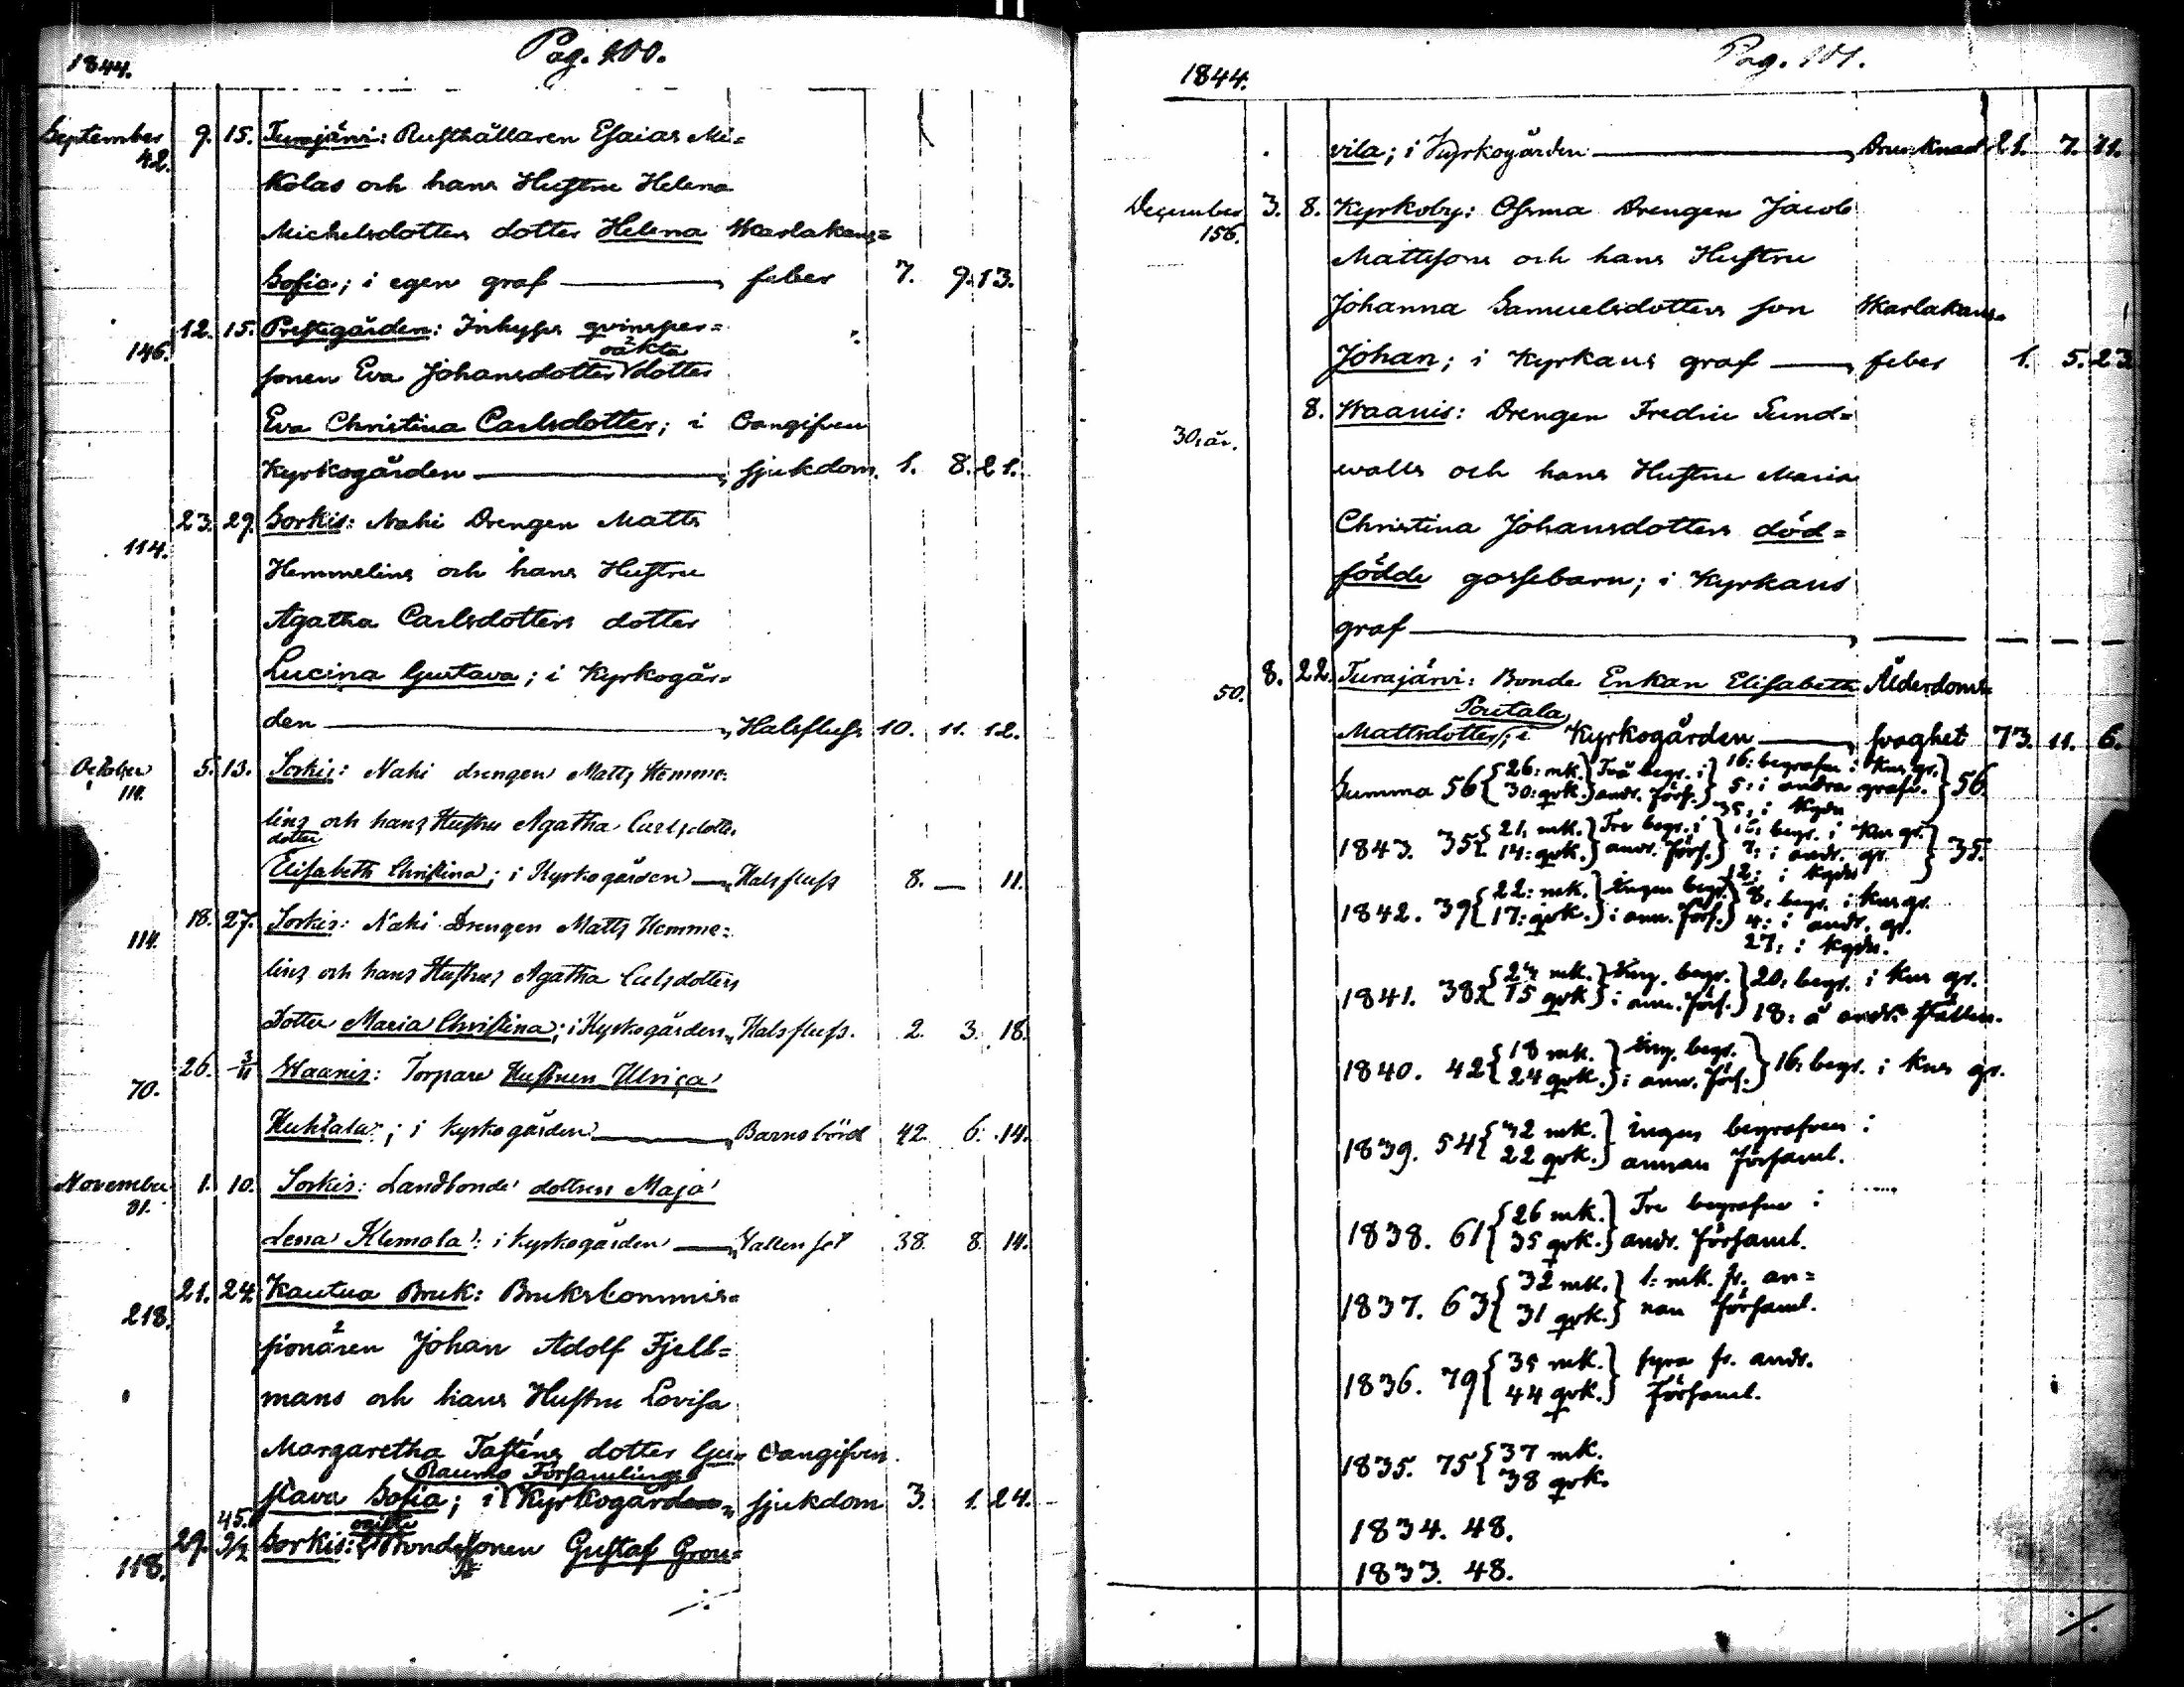 1844.
Pag. 100.
September 9. 15. Turajärvi: Rusthållaren Esaias Mi=
42.
kolas och hans Hustru Helena
Michelsdotters dotter Helena Skarlakans=
Sofia; i egen graf — feber 7. 9. 13.
12. 15. Prestegården: Inhyses qvinsper=
146.
oäkta
sonen Eva Johansdotters dotter
Eva Christina Carlsdotter; i Oangifven
Kyrkogården — sjukdom. 1. 8. 21.
23. 29. Sorkis: Nahi Drengen Matts
114.
Hemmelins och hans Hustru
Agatha Carlsdotters dotter
Lucina Gustava; i Kyrkogår=
den — Halsfluss 10. 11. 12.
October 5. 13. Sorkis: Nahi drengen Matts Hemme=
114.
lins och hans Hustrus Agatha Carlsdotters
dotter
Elisabeth Christina; i Kyrkogården — Halsfluss 8. — 11.
18. 27. Sorkis: Nahi Drengen Matts Hemme=
114.
lins och hans Hustrus Agatha Carlsdotters
Dotter Maria Christina; i Kyrkogården, Halsfluss. 2. 3. 18.
26. 3/11 Waanis: Torpare Hustrun Ulrica
70.
Huhtala; i Kyrkogården — Barnsbörd 42. 6. 14.
November 1. 10. Sorkis: Landbonde dottren Maja
81.
Lena Klemola: i Kyrkogården — Vattensot 38. 8. 14.
21. 24. Kautua Bruk: Brukscommis=
218.
sionären Johan Adolf Fjell=
mans och hans Hustru Lovisa
Margaretha Tasténs dotter Gu= Oangifven
Raumo Församlings
stava Sofia; i Kyrkogården, sjukdom 3. 1. 24.
45. ogifte
29. 9/2 Sorkis: Bondesonen Gustaf Grou=
118.
1844.
Pag. 101.
vila; i Kyrkogården — Drunknad 21. 7. 11.
December 3. 8. Kyrkoby: Ohrma Drengen Jacob
156.
Mattssons och hans Hustru
Johanna Samuelsdotters son Skarlakans=
Johan; i Kyrkans graf — feber 1. 5. 23
8. Waanis: Drengen Fredric Sund=
30, år.
walls och hans Hustru Maria
Christina Johansdotters död=
födde gossebarn; i Kyrkans
graf — — — —
8. 22. Turajärvi: Bonde Enkan Elisabeth Ålderdoms=
50.
Poutala
Mattsdotter; i Kyrkogården — svaghet 73. 11. 6.
Summa 56 {26: mk. 30: qvk.} Två begr. i andr. förs.} 16: begrafne i Kns gr. 5: i andra grafv. 35: i Kgdn} 56.
1843. 35 {21: mk. 14: qvk.} Tre begr. i andr. förs.} 16: begr. i Kns gr. 7: i andr. gr. 12: i Kgdn} 35.
1842. 39 {22: mk. 17: qvk.} Ingen begr. i ann. förs.} 8: begr. i Kns gr. 4: i andr. gr. 27: i Kgdn.
1841. 38 {23 mk. 15 qvk} Ing. begr. i ann. förs.} 20: begr. i Kns gr. 18: å andr. ställen.
1840. 42 {18 mk. 24 qvk.} Ing. begr. i ann. förs.} 16: begr. i Kns gr.
1839. 54 {32 mk. 22 qvk.} ingen begrafven i annan församl.
1838. 61 {26 mk. 35 qvk.} Tre begrafne i andr. församl.
1837. 63 {32 mk. 31 qvk.} 1: mk. fr. an= nan församl.
1836. 79 {35 mk. 44 qvk.} fyra fr. andr. församl.
1835. 75 {37 mk. 38 qvk.
1834. 48.
1833. 48.